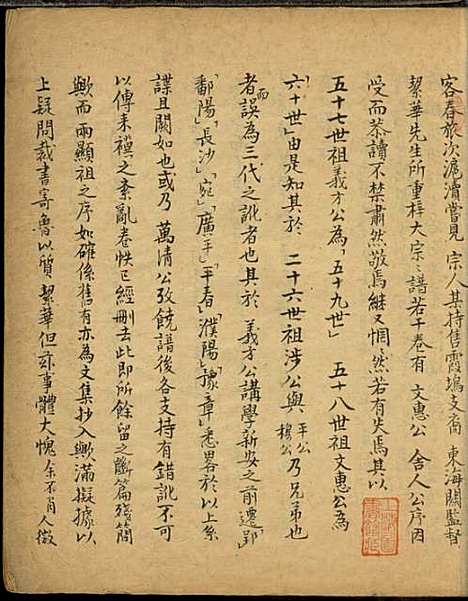 容春旅次滬瀆嘗見 宗人某持售霞塢支裔 東海關監督
絜華先生所重梓大宗譜若干卷有 文惠公 舍人公序因
受而恭讀不禁肅然敬焉継又惘然若有失焉其以
五十七世祖義才公為「五十九世」 五十八世祖文惠公為
「六十世」由是知其於 二十六世祖涉公與 平公 穆公 乃兄弟也
者而誤為三代之訛者也其於 義才公講學新安之前遷郢」
「鄱陽」「長沙」「宛」「廣平」「平春」「濮陽」「豫章」悉畧於以上系
諜且闕如也或乃 萬清公攷饒譜後各支持有錯訛不可
以傳来禩之紊亂卷帙已經刪去此即所餘留之斷篇殘簡
歟而兩顯祖之序如確係舊有亦為文集抄入歟滿擬據以
上疑問裁書寄魯以質 絜華但茲事體大愧余不肖人微